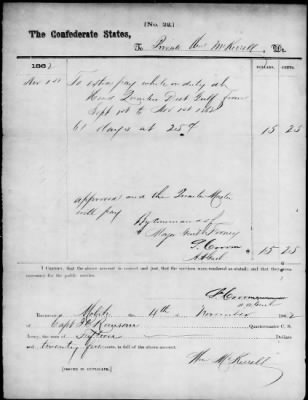 [No. 22.]
The Confederate States,
To Private Wm McKissell, Dr.
DOLLARS. CENTS.
186
Nov 1st To extra pay while on duty at
Head Quarters Dist Gulf from
Sept 1st to Oct 31st 1862
61 days at 25 ¢ 15 25
approved and the Quarter Master
will pay
By command of
Major Genl Forney
15 25
I CERTIFY, that the above account is correct and just; that the services were rendered as stated; and that they were
necessary for the public service.
RECEIVED at Mobile the 4th of November 1862
of Capt Quartermaster C. S.
Army, the sum of fifteen dollars
and twenty five cents, in full of the above account.
Wm McKissell
[SIGNED IN DUPLICATE.]